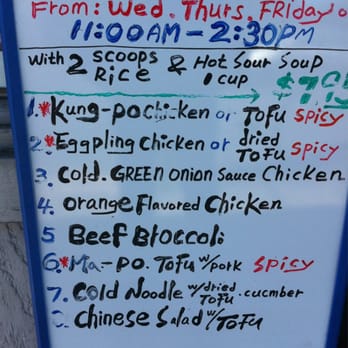 From: Wed. Thurs, FRiday o
11:00AM - 2:30PM
With 2 SCOOPS RICE & Hot Sour Soup 1 CUP
$7.
1.*Kung-pochicken or Tofu SPICY
2.*Eggpling Chicken or dried Tofu SPICY
3. Cold. GREEN Onion Sauce Chicken
4. Orange Flavored Chicken
5 Beef Broccoli
6.*Ma-po. Tofu w/pork Spicy
7. Cold Noodle w/dried Tofu .cucmber
8. Chinese Salad w/Tofu